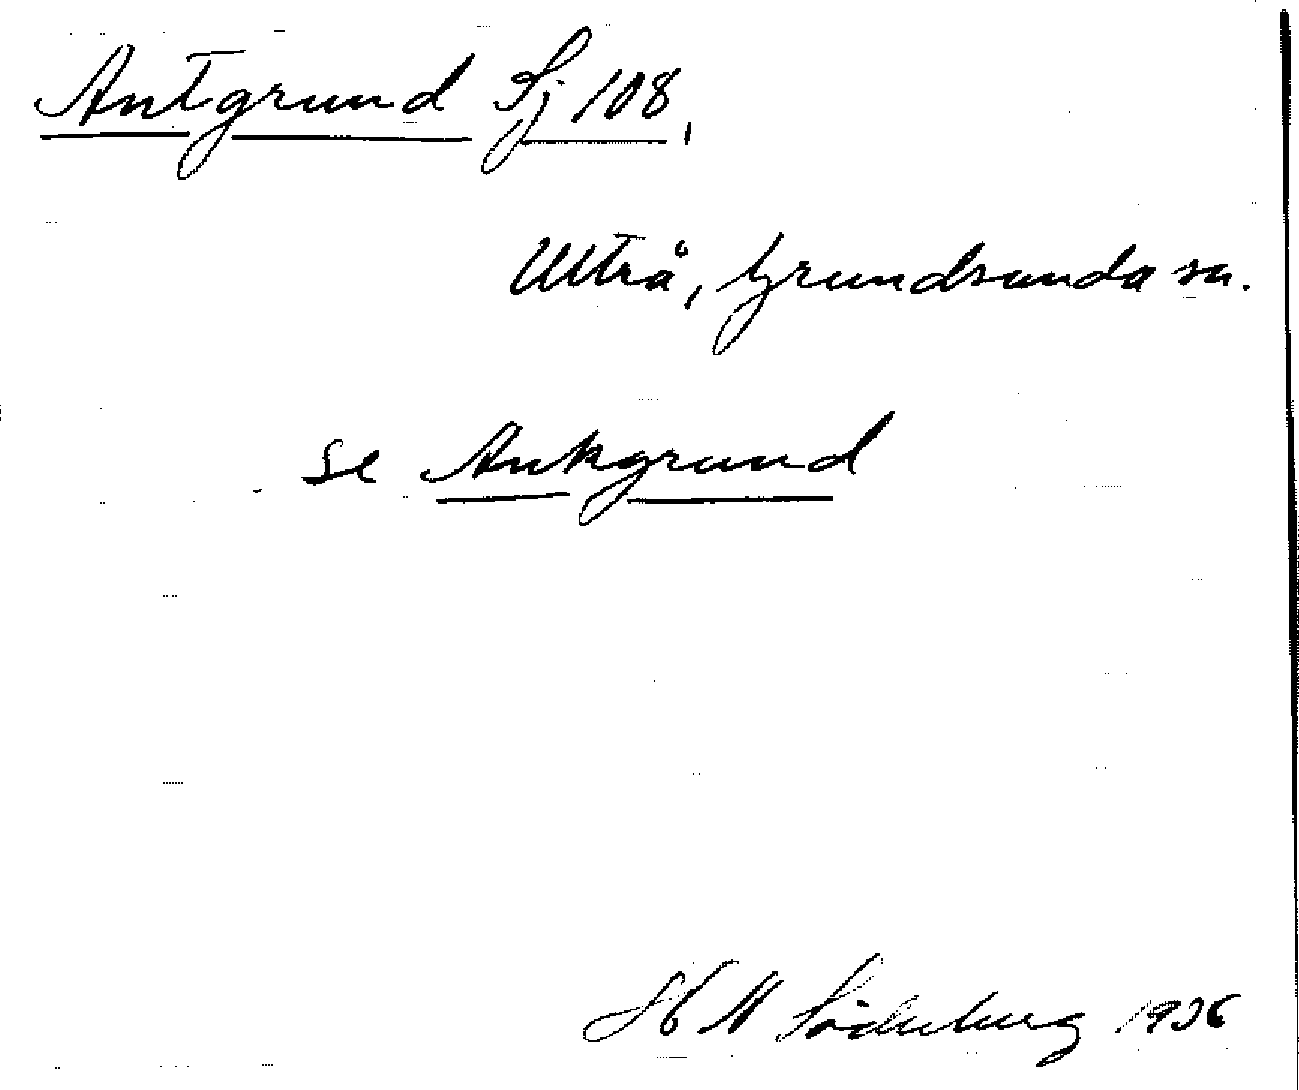 Antgrund Sj 108,
Ulfrå, Grundsunda sn.
se Ankgrund
H N Söderberg 1936